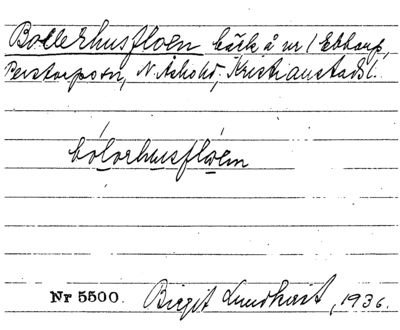 Bollerhusfloen bäck å nr 1 Ebbarp,
Perstorps sn, N. Åsbo hd, Kristianstads l.
bólorhusflóen
Nr 5500. Birgit Lundkvist, 1936.